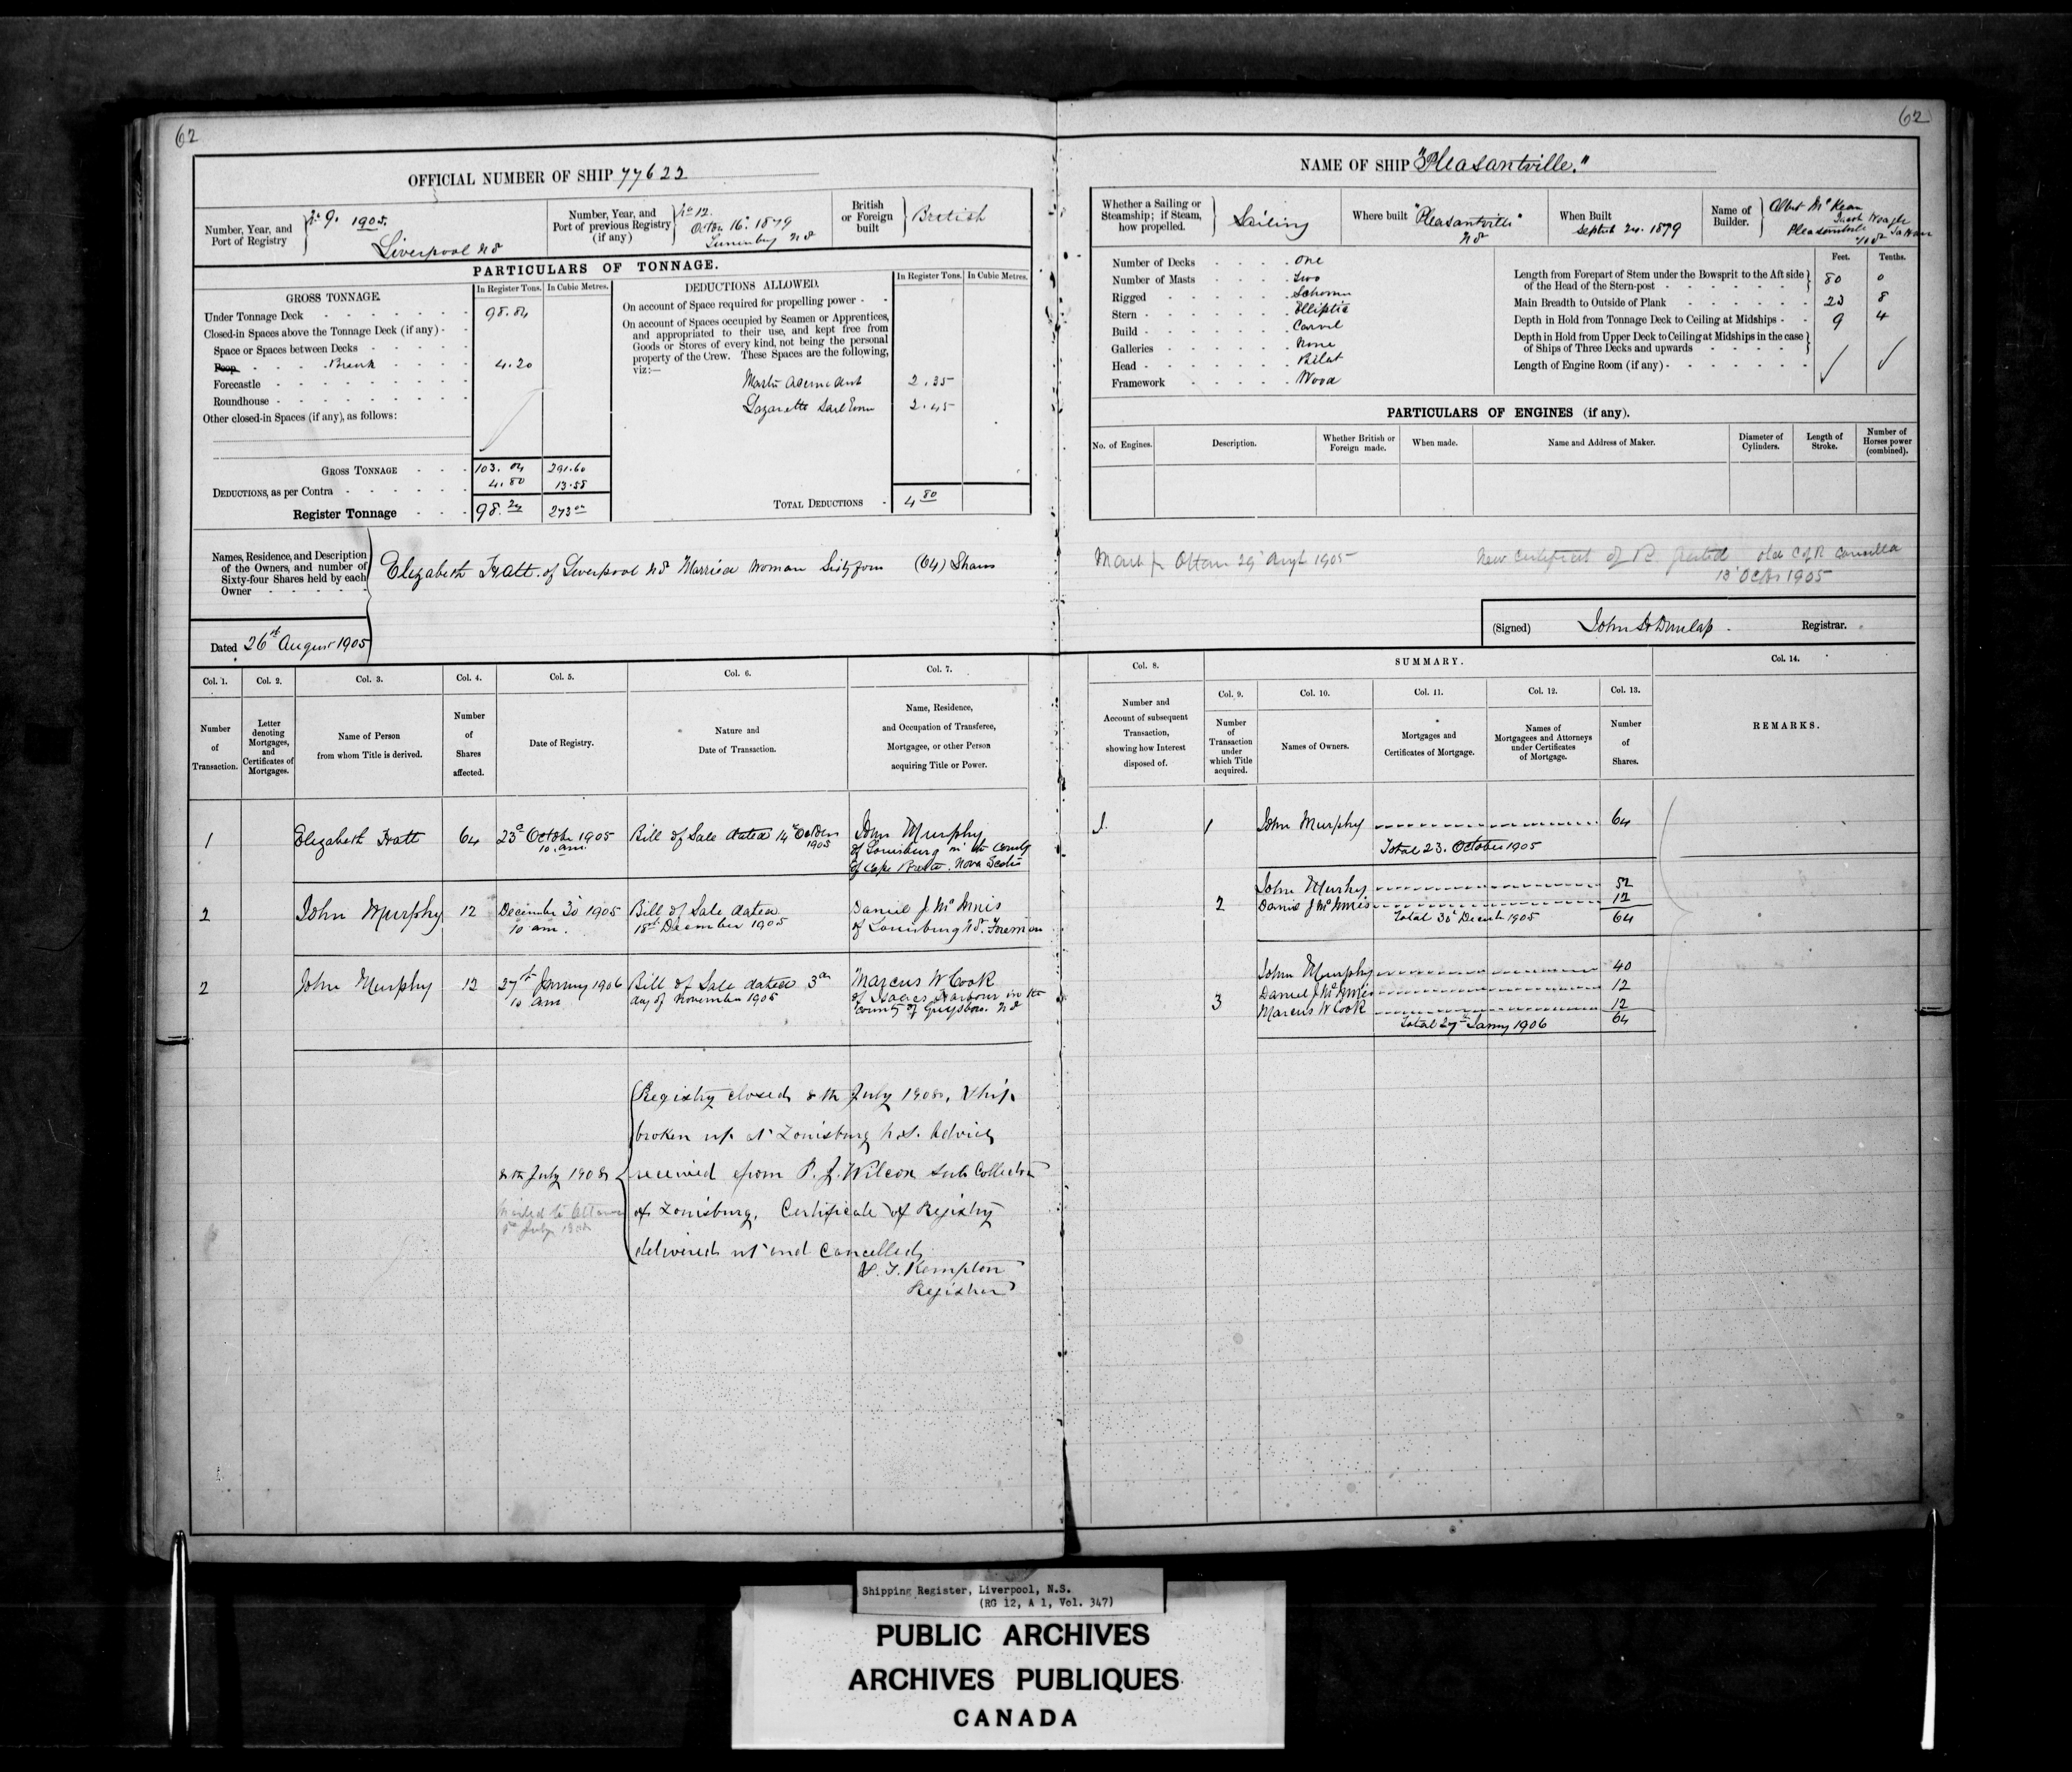 62
OFFICIAL NUMBER OF SHIP 77622
Number, Year, and Port of Registry
No 9. 1905.
Liverpool NS
Number, Year, and Port of previous Registry (if any)
No 12.
Octbr 16. 1879
Lunenburg NS
British or Foreign built
British
PARTICULARS OF TONNAGE.
GROSS TONNAGE.
In Register Tons. In Cubic Metres.
Under Tonnage Deck 98.84
Closed-in Spaces above the Tonnage Deck (if any)
Space or Spaces between Decks
Poop Break 4.20
Forecastle
Roundhouse
Other closed-in Spaces (if any), as follows:
GROSS TONNAGE 103.04 291.60
DEDUCTIONS, as per Contra 4.80 13.58
Register Tonnage 98.24
DEDUCTIONS ALLOWED.
In Register Tons. In Cubic Metres.
On account of Space required for propelling power
On account of Spaces occupied by Seamen or Apprentices,
and appropriated to their use, and kept free from
Goods or Stores of every kind, not being the personal
property of the Crew. These Spaces are the following,
viz:—
2.35
Lazarette 2.45
TOTAL DEDUCTIONS 4 80
Names, Residence, and Description
of the Owners, and number of
Sixty-four Shares held by each
Owner
Elizabeth Hatt of Liverpool NS Married Woman Sixty four (64) Shares
Dated 26th August 1905
Col. 1. Col. 2. Col. 3. Col. 4. Col. 5. Col. 6. Col. 7.
Number of Transaction.
Letter denoting Mortgages, and Certificates of Mortgages.
Name of Person from whom Title is derived.
Number of Shares affected.
Date of Registry.
Nature and Date of Transaction.
Name, Residence, and Occupation of Transferee, Mortgagee, or other Person acquiring Title or Power.
1 Elizabeth Hatt 64 23d October 1905 Bill of Sale dated 14th October John Murphy
10 am. 1905 of Louisburg in the County
of Cape Breton. Nova Scotia
2 John Murphy 12 December 30 1905 Bill of Sale dated Daniel J McInnis
10 am. 18th December 1905 of Louisburg NS. Foreman
2 John Murphy 12 27th January 1906 Bill of Sale dated 3rd Marcus W Cook
10 am day of November 1905 of Isaacs Harbour in the
County of Guysboro. NS
Registry closed 8th July 1908, Ship
broken up at Louisburg N.S. Advice
8th July 1908 received from P. J. Wilcox Sub Collector
of Louisburg, Certificate of Registry
delivered up and Cancelled,
Kempton
Registrar
62
NAME OF SHIP "Pleasantville."
Whether a Sailing or Steamship; if Steam, how propelled.
Sailing
Where built
"Pleasantville"
NS
When Built
Septbr 24. 1879
Name of Builder.
Albert McKean
Pleasantville
Number of Decks One
Number of Masts Two
Rigged Schooner
Stern Elliptic
Build Carvel
Galleries None
Head Billet
Framework Wood
Feet. Tenths.
Length from Forepart of Stem under the Bowsprit to the Aft side
of the Head of the Stern-post 80 0
Main Breadth to Outside of Plank 23 8
Depth in Hold from Tonnage Deck to Ceiling at Midships 9 4
Depth in Hold from Upper Deck to Ceiling at Midships in the case
of Ships of Three Decks and upwards
Length of Engine Room (if any)
PARTICULARS OF ENGINES (if any).
No. of Engines. Description. Whether British or Foreign made. When made. Name and Address of Maker. Diameter of Cylinders. Length of Stroke. Number of Horses power (combined).
29 Augt 1905
New Certificate of R. granted old C of R cancelled
13 Octbr 1905
(Signed) Dunlap Registrar.
Col. 8. SUMMARY. Col. 14.
Col. 9. Col. 10. Col. 11. Col. 12. Col. 13.
Number and Account of subsequent Transaction, showing how Interest disposed of.
Number of Transaction under which Title acquired.
Names of Owners.
Mortgages and Certificates of Mortgage.
Names of Mortgagees and Attorneys under Certificates of Mortgage.
Number of Shares.
REMARKS.
1 John Murphy 64
Total 23. October 1905
John Murphy 52
2 Daniel J McInnis 12
Total 30 Decemb 1905 64
John Murphy 40
Daniel J McInnis 12
3 Marcus W Cook 12
Total 27th Janry 1906 64
Shipping Register, Liverpool, N.S.
(RG 12, A 1, Vol. 347)
PUBLIC ARCHIVES
ARCHIVES PUBLIQUES
CANADA